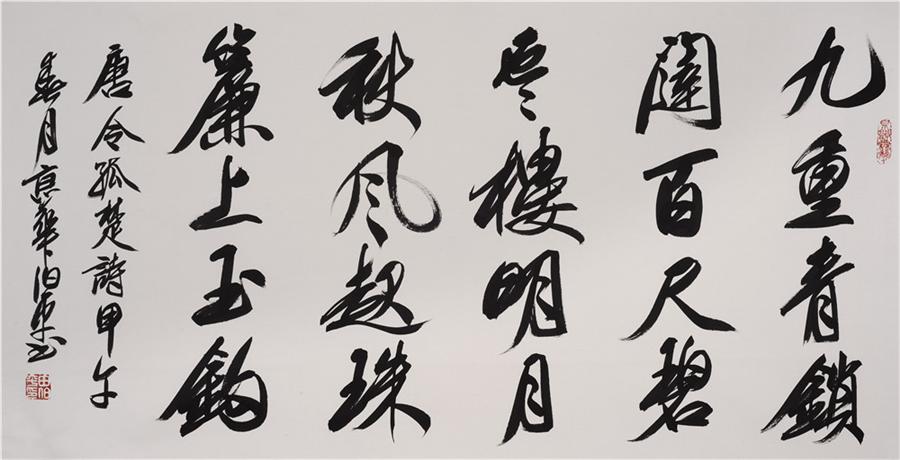 九重青鎖
闥百尺碧
雲樓明月
秋风起珠
簾上玉鈎
唐令狐楚詩甲午
春月京華伯平书